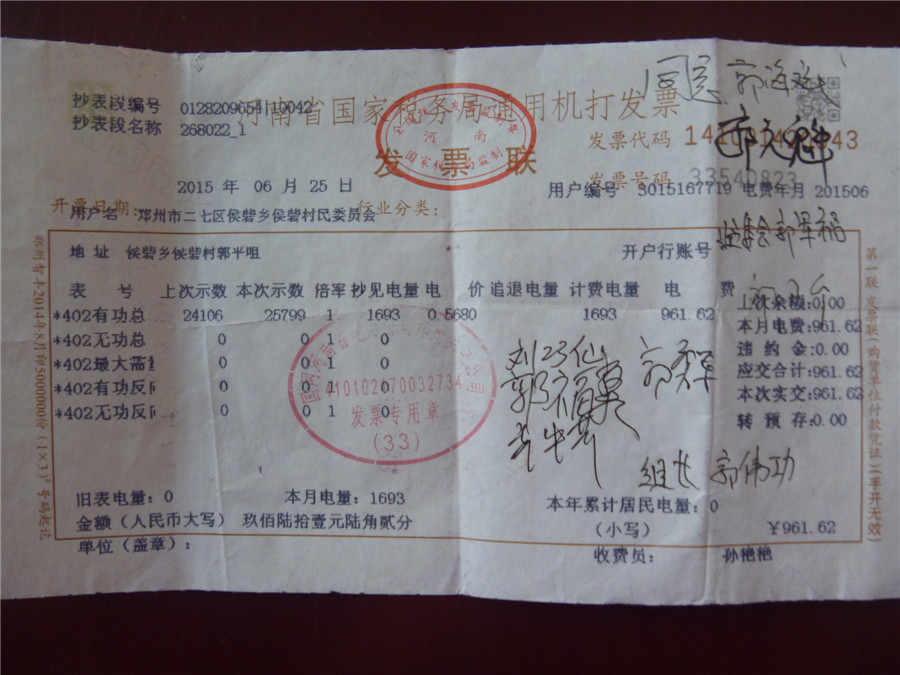 抄表段编号 0128209654|10042
抄表段名称 268022_1
河南省国家税务局通用机打发票
发票联
河南
国家税务局监制
发票代码
发票号码 33540823
2015 年 06 月 25 日
用户编号 3015167719 电费年月 201506
开票日期:
行业分类:
用户名 郑州市二七区侯砦乡侯砦村民委员会
地 址 侯砦乡侯砦村郭平咀
开户行账号
表 号 上次示数 本次示数 倍率 抄见电量 电 价 追退电量 计费电量 电 费 上次余额:0.00
*402有功总 24106 25799 1 1693 0.5680 1693 961.62
*402无功总 0 0 1 0
*402最大需量 0 0 1 0
*402有功反向 0 0 1 0
*402无功反向 0 0 1 0
本月电费:961.62
违 约 金:0.00
应交合计:961.62
本次实交:961.62
转 预 存:0.00
410102670032734
发票专用章
(33)
同意
组长 郭伟功
旧表电量: 0 本月电量: 1693 本年累计居民电量: 0
金额（人民币大写） 玖佰陆拾壹元陆角贰分 （小写） ¥961.62
单位（盖章）: 收费员: 孙艳艳
第一联 发票联（购货单位付款凭证）（手开无效）